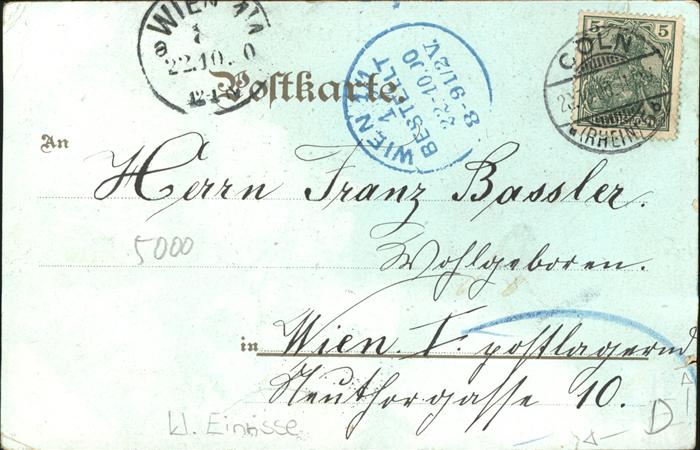 WIEN 1/1
22.10. 0
Postkarte.
WIEN 1/1
1
BESTELLT
22.10.00
8-91/2V.
5
5
CÖLN
(RHEIN)
An
Herrn Franz Bassler.
5000
Wohlgeboren.
in Wien. I. postlagernd
Neuthorgasse 10.
kl. Einrisse
D